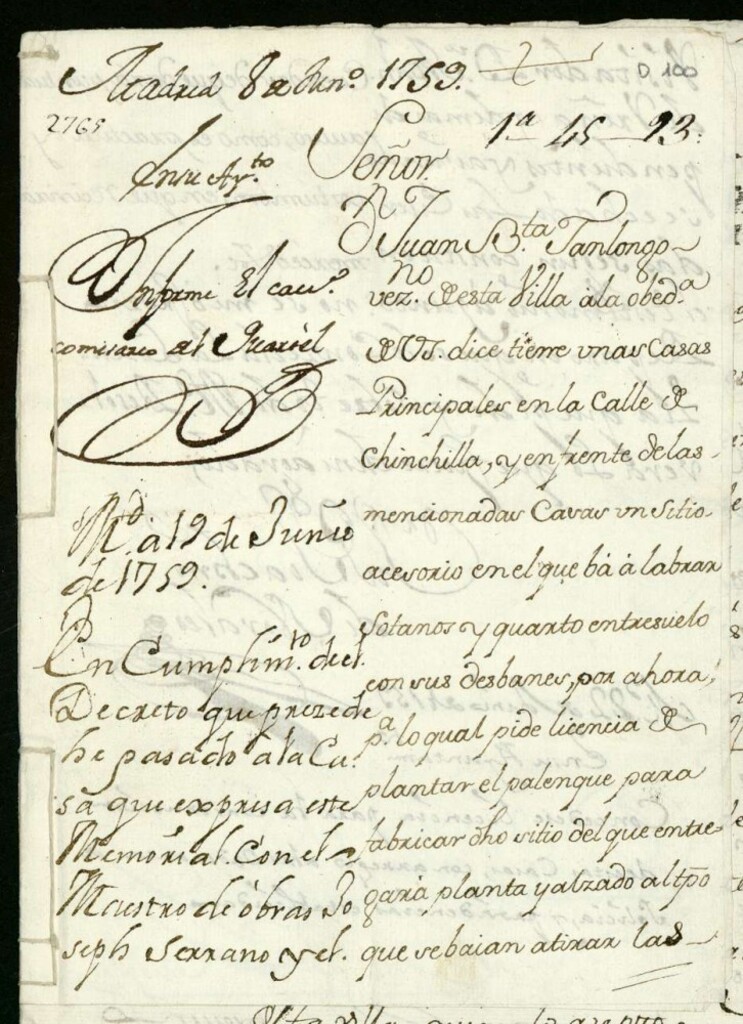 Madrid 8 de Jun.º 1759.
D 100
2765
1ª 45 93.
Ensu Ay.to
Señor
Dn Juan B.ta Tanlongo
vez.no de esta Villa à la obed.a
de VS. dice tiene unas Casas
Principales en la Calle de
Chinchilla, y enfrente de las
mencionadas Casas un sitio
acesorio en el que bá à labrar
sotanos y quarto entresuelo
con sus desbanes, por ahora,
p.a lo qual pide licencia de
plantar el palenque para
fabricar dho sitio del que entre
gará planta y alzado al tpo
que se baian a tirar las
Informe El cav.º
comisario del Quartel
M.d à 19 de Junio
de 1759.
En Cumplim.to de el
Decreto que prezede
he pasado à la Ca
sa que expresa este
Memorial. Con el
Maestro de òbras Jo
seph Serrano y el.